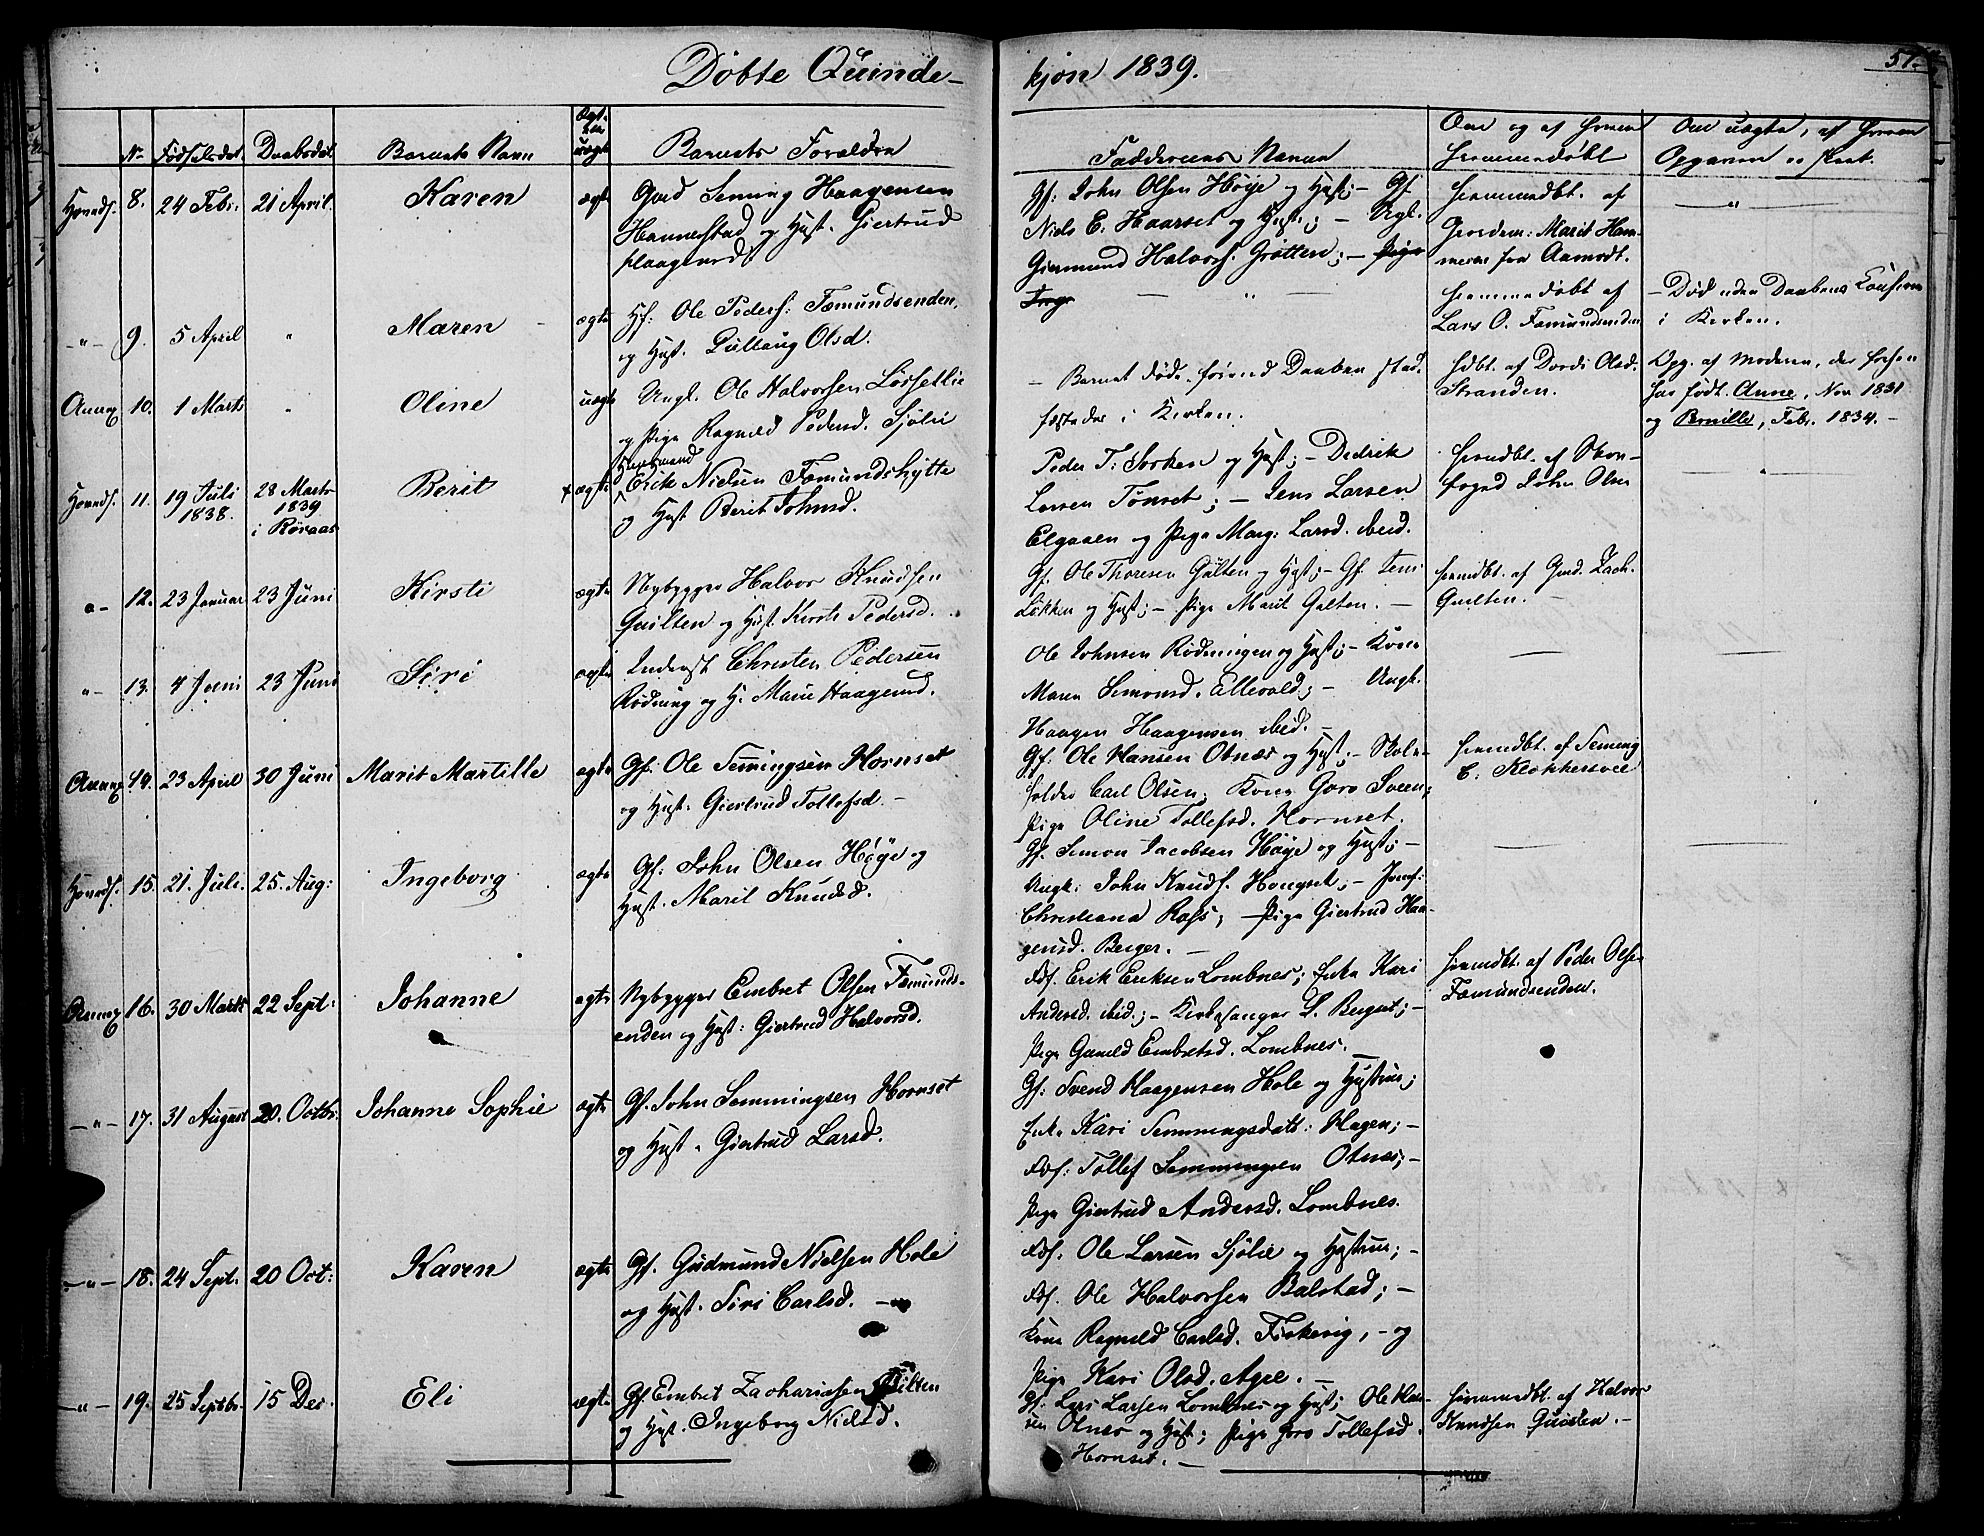 Döbte Quinde-
kjön 1839.
57.
No
Födselsdat.
Daabsdat.
Barnets Navn
Barnets Foreldre
Faddernes Navne
Hoveds. 8. 24 Febr. 21 April. Karen ægte
Semming Haagensen
Hammerstad og Hust. Giertrud
Haagensd.
Gf: John Olsen Höye og Hust; - Gf
Niels E. Haarset og Hust; - Ungl.
Giermund Halvors. Grötten; - Pige
hjemmedbt. af
Marit Ham-
fra Aamodt.
-"- 9. 5 April " Maren ægte
Ole Peders: Fæmundsenden,
og Hust. Olsd.
hjemmedöbt af
Lars O. Fæmundsenden
- Död uden Daabens
i Kirken.
Annex 10. 1 Marts " Oline uægte
Ungl. Ole Halvorsen Lössetlie
og Pige Ragnild Pedersd. Sjölie
- Barnet döde förend Daaben stad-
fæstedes i Kirken.
hdbt. af Dordi Olsd.
Stranden.
Opg. af Moderen, der forhen
har födt Anne, Nov 1831
og Pernille, Febr. 1834. -
Hoveds. 11. 19 Juli 1838. 28 Marts 1839 i Röraas Berit ægte
Erik Nielsen Fæmundshytte
og Hust Berit Johnsd.
Peder T: Sorken og Hust; - Dedrik
Larsen Tönset; - Jens Larsen
Elgaaen og Pige Marg: Larsd. ibid.
hjemdbt. af Skov-
foged John Olsen
-"- 12. 23 Januar 23 Juni Kirsti ægte
Nybygger Halvor Knudsen
Quilten og Hust. Kirsti Pedersd.
Gf. Ole Thoresen Galten og Hust; - Gf. Jens
Lökken og Hust; - Pige Marit Galten. -
hjemdbt. af Gud. Zach.
Quilten. -
-"- 13. 4 Juni 23 Juni Siri ægte
Inderst Christen Pedersen
Rödning og H. Marie Haagensd.
Ole Johnsen Rödningen og Hust; - Kone
Maren Simonsd. Ellevold; - Ungk.
Haagen Haagensen ibid. -
Annex 14. 23 April 30 Juni Marit Martille ægte
Gf. Ole Semingsen Hornset
og Hust. Giertrud Tollefsd. -
Gf. Ole Hansen Otnæs og Hust; - Skole-
holder Carl Olsen; Kone Goro Sveen;
Pige Oline Tollefsd. Hornset.
hjemdbt. af Seming
E. Klokkersvee
Hoveds. 15. 21. Juli. 25. Aug: Ingeborg ægte
Gf. John Olsen Höye og
Hust. Marit Knudsd.
Gf. Simon Jacobsen Höye og Hust; -
Ungk: John Knuds. Hougset; - Jomf.
Christiana Rafs; - Pige Giertrud Haa-
gensd. Berger. -
Annex 16. 30 Marts 22 Sept: Johanne ægte
Nybygger Embret Olsen Fæmunds-
enden og Hust: Giertrud Halvorsd.
Erik Eriksen Lombnes; Enke Kari
Andersd. ibid.; - Kirkesanger S. Bugaet; -
Pige Gunild Embretsd. Lombnes. -
hjemdbt. af Peder Olsen
Fæmundsenden.
-"- 17. 31 August 20. Octbr. Johanne Sophie ægte
Gf. John Semmingsen Hornset
og Hust. Giertrud Larsd.
Gf: Svend Haagensen Hole og Hustrue;
Enke Kari Semmingsdatt: Hagen; -
Tollef Semmingsen Otnæs; -
Pige Giertrud Andersd. Lombnes.
-"- 18. 24 Sept. 20 Oct: Karen ægte
Gf. Gudmund Nielsen Hole
og Hust. Siri Carlsd. -
Ole Larsen Sjölie og Hustrue; -
Ole Halvorsen Balstad; -
Kone Ragnild Carlsd. Fiskevig, - og
Pige Kari Olsd. Agre. -
-"- 19. 25 Septbr. 15 Dec. Eli ægte
Gf. Embret Zachariassen Quilten
og Hust. Ingeborg Nielsd.
Gf: Lars Larsen Lombnes og Hust; Ole Han-
sen Otnæs og Hust; Pige Goro Tollefsd.
Hornset. -
hjemmedbt. af Halvor
Knudsen Quilten. -